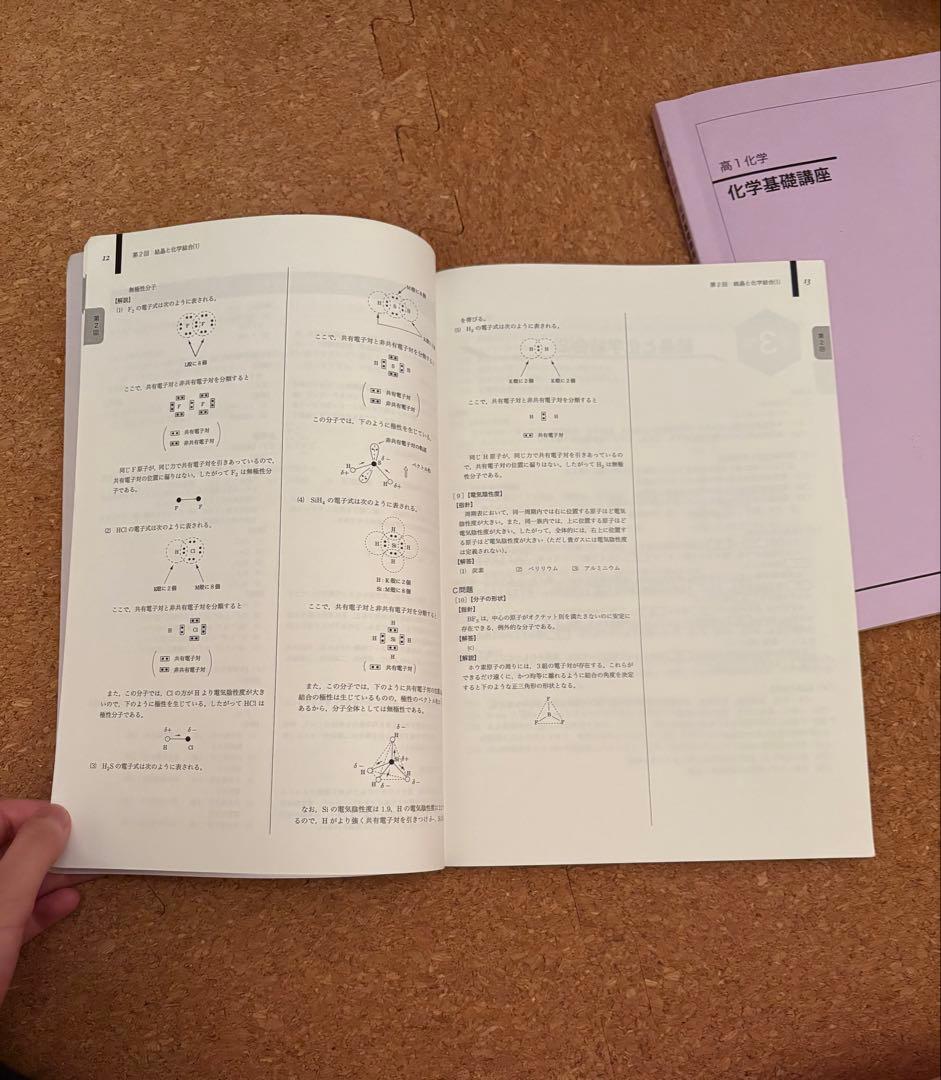 12
第2回 結晶と化学結合(1)
第2回
無極性分子
【解説】
(1) F₂の電子式は次のように表される。
F F
L殻に8個
ここで,共有電子対と非共有電子対を分類すると
F F
共有電子対
非共有電子対
同じF原子が,同じ力で共有電子対を引きあっているので,
共有電子対の位置に偏りはない。したがってF₂は無極性分
子である。
F F
(2) HClの電子式は次のように表される。
H Cl
K殻に2個 M殻に8個
ここで,共有電子対と非共有電子対を分類すると
H Cl
共有電子対
非共有電子対
また,この分子では,Clの方がHより電気陰性度が大き
いので,下のように極性を生じている。したがってHClは
極性分子である。
δ+ δ−
H Cl
(3) H₂Sの電子式は次のように表される。
H S
ここで,共有電子対と非共有電子対を分類する
H S H
共有電子対
非共有電子対
この分子では,下のように極性を生じている。
非共有電子対の軌道
δ−
S
H
δ+
H
δ+
(4) SiH₄の電子式は次のように表される。
H
H Si H
H
H:K殻に2個
Si:M殻に8個
ここで,共有電子対と非共有電子対を分類すると
H
H Si H
H
共有電子対
また,この分子では,下のように共有電子対の
結合の極性は生じているものの,極性のベクトル
あるから,分子全体としては無極性である。
δ−
H
Si δ+
δ−
H
H
H
δ−
δ−
なお,Siの電気陰性度は1.9,Hの電気陰性度は
るので,Hがより強く共有電子対を引きつけ
第2回 結晶と化学結合(1)
13
第2回
を帯びる。
(5) H₂の電子式は次のように表される。
H H
K殻に2個 K殻に2個
ここで,共有電子対と非共有電子対を分類すると
H H
共有電子対
同じH原子が,同じ力で共有電子対を引きあっているの
で,共有電子対の位置に偏りはない。したがってH₂は無極
性分子である。
[9]【電気陰性度】
【指針】
周期表において,同一周期内では右に位置する原子ほど電気
陰性度が大きい。また,同一族内では,上に位置する原子ほど
電気陰性度が大きい。したがって,全体的には,右上に位置す
る原子ほど電気陰性度が大きい(ただし貴ガスには電気陰性度
は定義されない)。
【解答】
(1) 炭素 (2) ベリリウム (3) アルミニウム
C問題
[10]【分子の形状】
【指針】
BF₃は,中心の原子がオクテット則を満たさないのに安定に
存在できる,例外的な分子である。
【解答】
(c)
【解説】
ホウ素原子の周りには,3組の電子対が存在する。これらが
できるだけ遠くに,かつ均等に離れるように結合の角度を決定
すると下のような正三角形の形状となる。
F
B
F F
高1化学
化学基礎講座